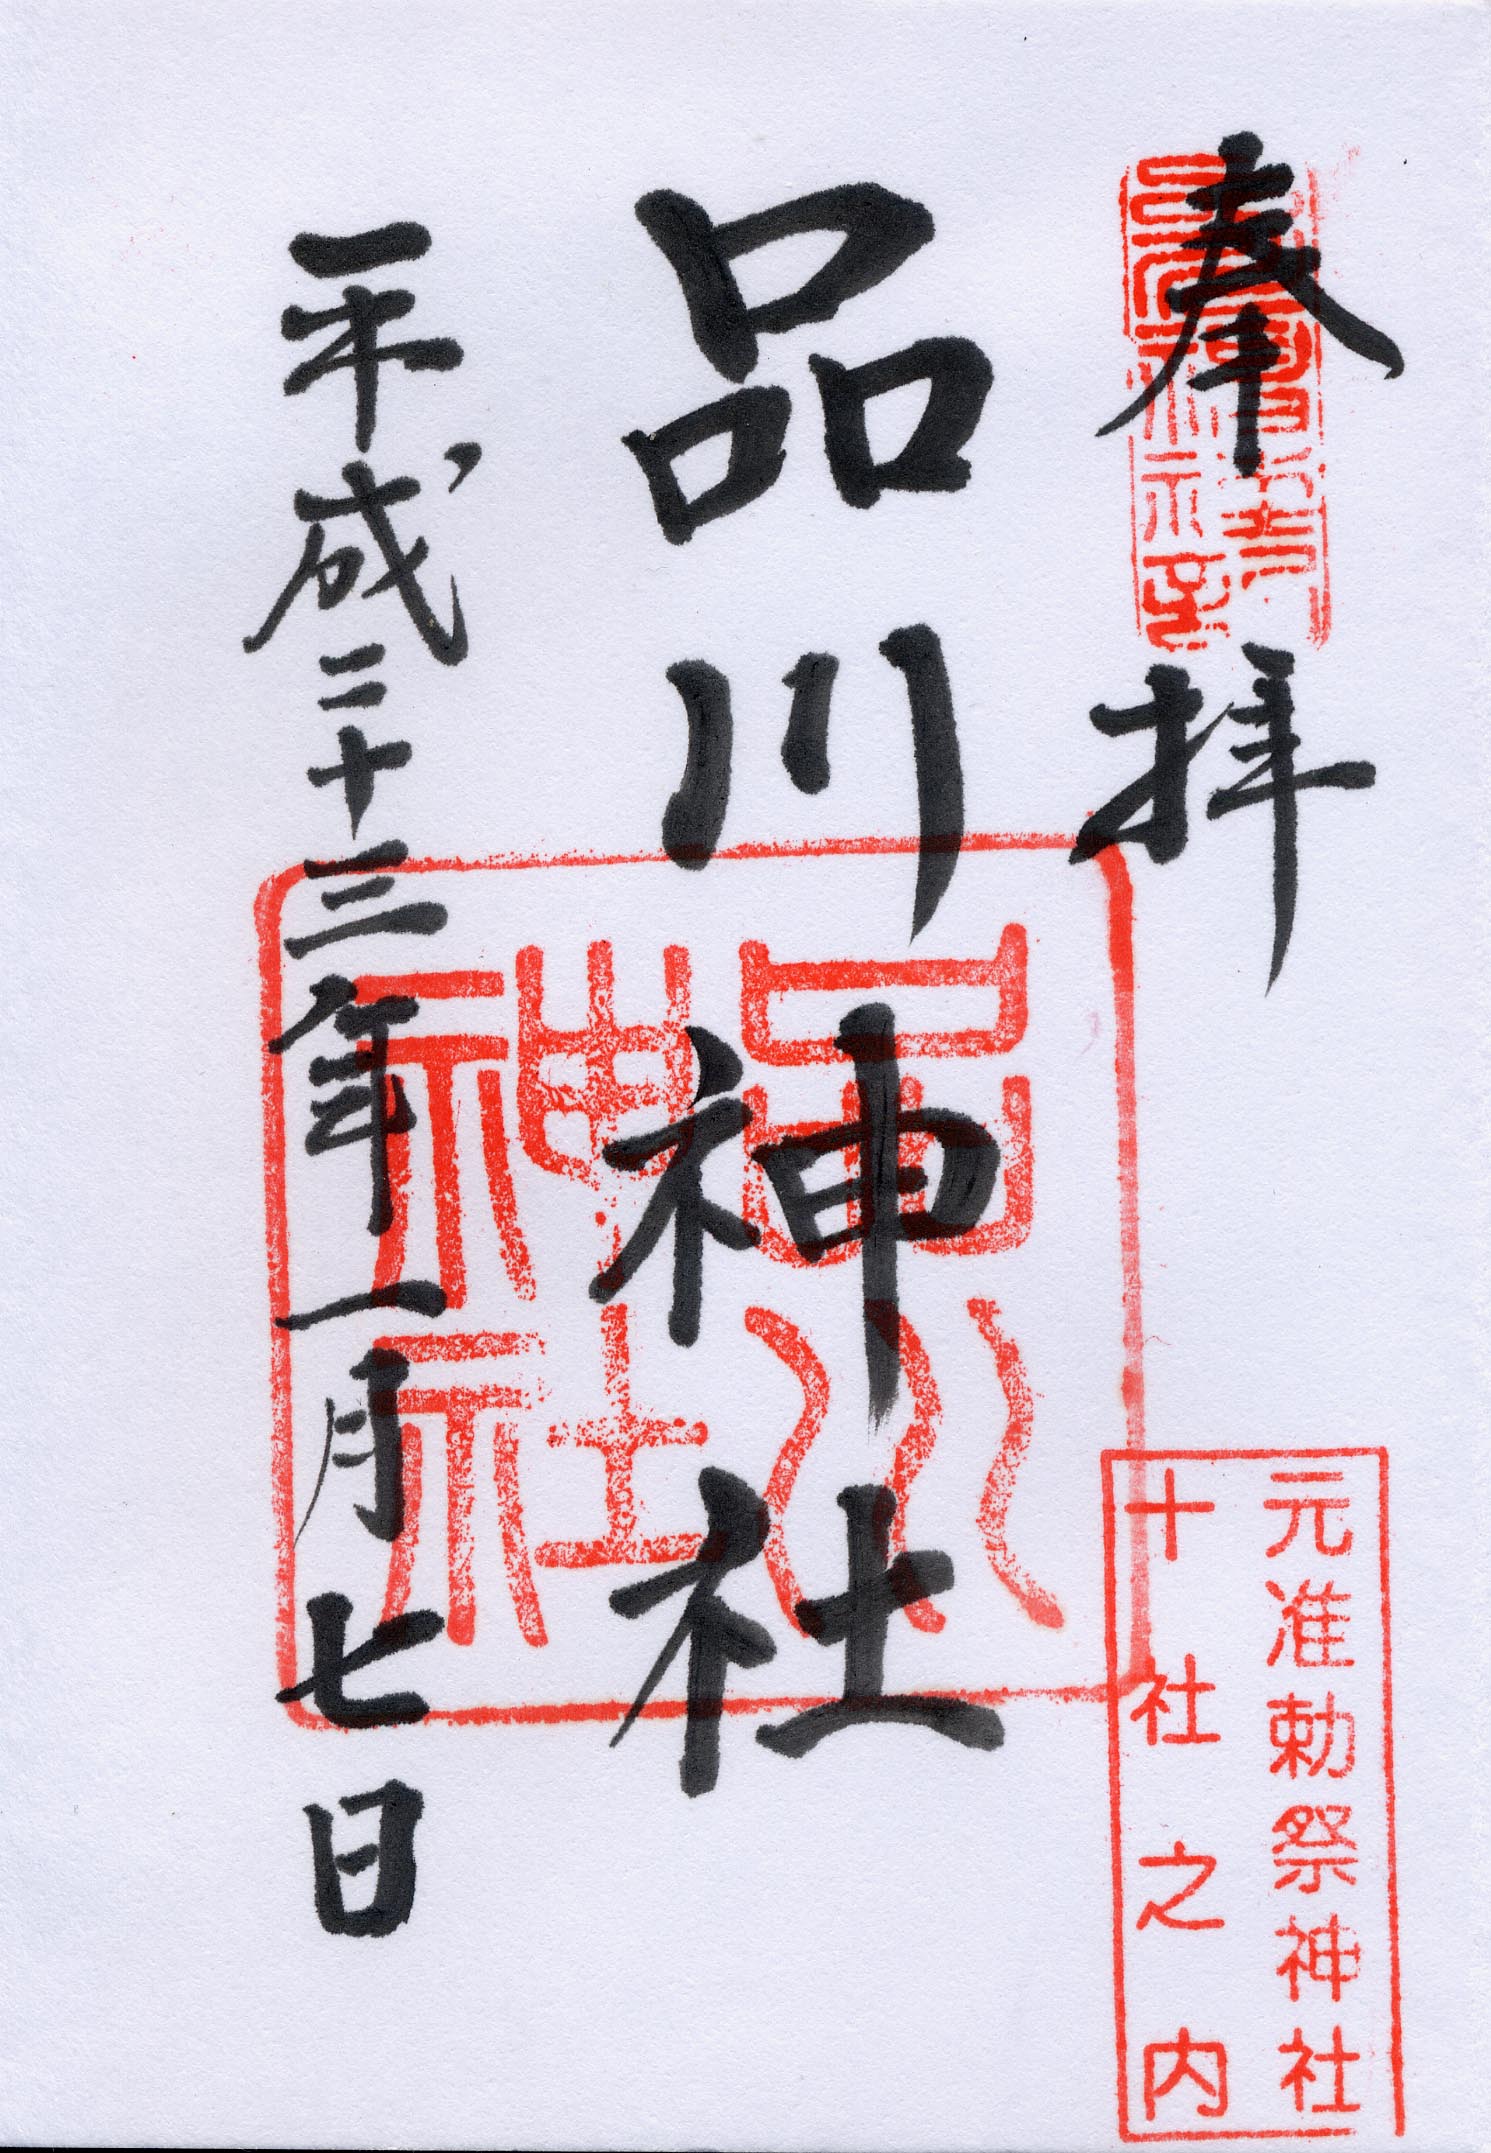 奉拝
元准勅祭神社
十社之内
品川神社
品川
神社
平成二十三年一月七日